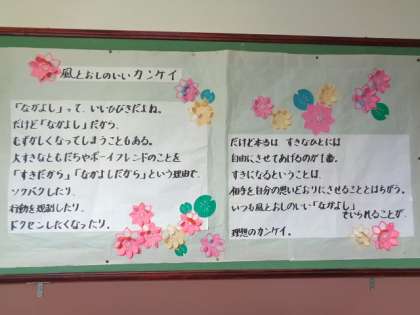 風とおしのいいカンケイ
「なかよし」って、いいひびきだよね。
だけど「なかよし」だから、
むずかしくなってしまうこともある。
大すきなともだちやボーイフレンドのことを
「すきだから」「なかよしだから」という理由で、
ソクバクしたり、
行動を規制したり、
ドクセンしたくなったり。
だけど本当は すきなひとには
自由にさせてあげるのが1番。
すきになるということは、
相手を自分の思いどおりにさせることとはちがう。
いつも風とおしのいい「なかよし」
でいられることが、
理想のカンケイ。